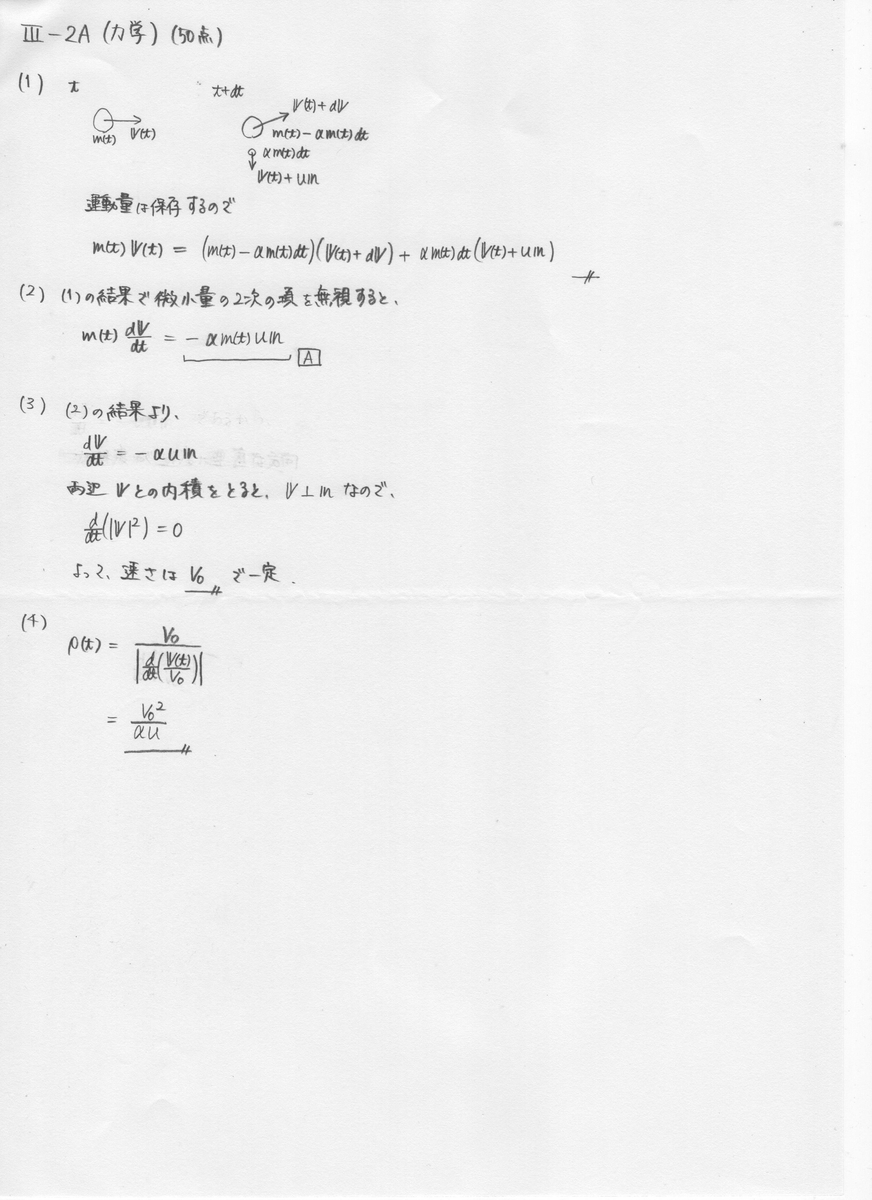 III-2A (力学) (50点)
(1) t t+dt
m(t) 𝕍(t)
𝕍(t)+d𝕍
m(t)-αm(t)dt
αm(t)dt
𝕍(t)+u𝕟
運動量は保存するので
m(t)𝕍(t) = (m(t)-αm(t)dt)(𝕍(t)+d𝕍) + αm(t)dt(𝕍(t)+u𝕟)
(2) (1)の結果で微小量の2次の項を無視すると、
m(t) d𝕍/dt = -αm(t)u𝕟 A
(3) (2)の結果より、
d𝕍/dt = -αu𝕟
両辺 𝕍との内積をとると、𝕍⊥𝕟 なので、
d/dt(|𝕍|²) = 0
よって、速さは V₀ で一定.
(4) ρ(t) = V₀ / |d/dt(𝕍(t)/V₀)|
= V₀²/αu